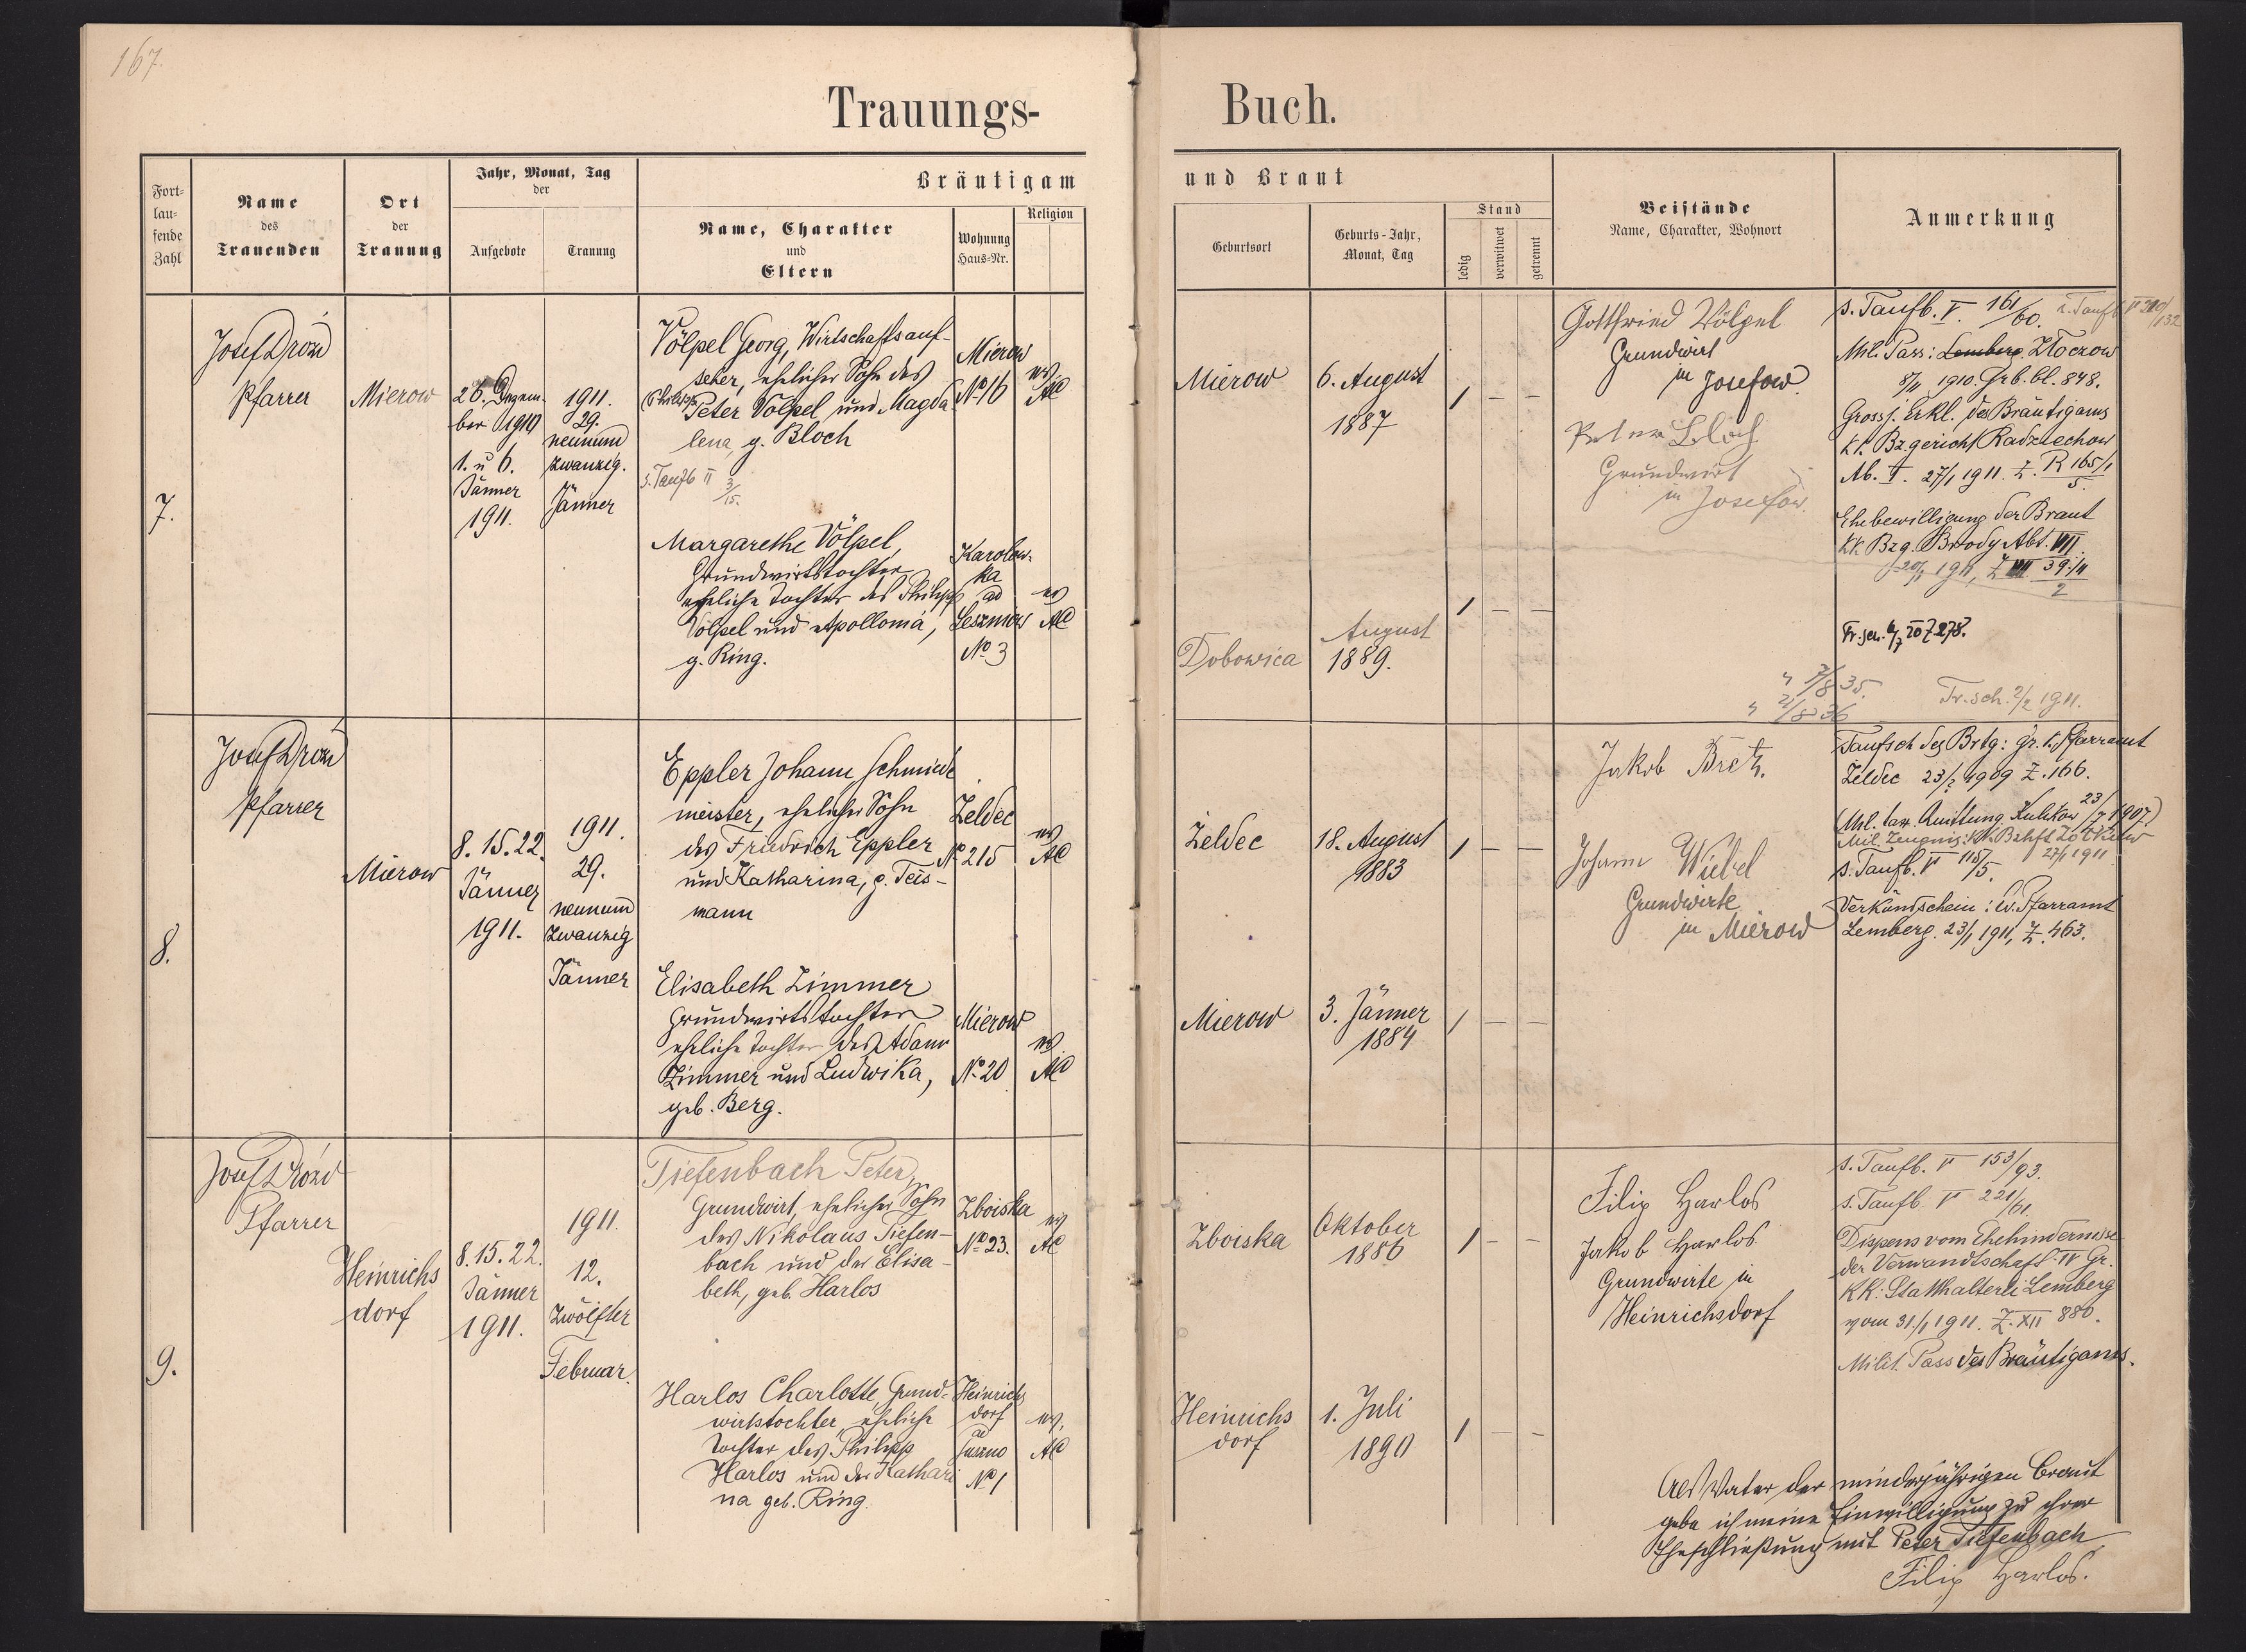 167.
Trauungs-
Buch.
Fort-
lau-
fende
Zahl
Name
des
Trauenden
Ort
der
Trauung
Jahr, Monat, Tag
der
Aufgebote
Trauung
Bräutigam
Name, Charakter
und
Eltern
Wohnung
Haus-Nr.
Religion
und Braut
Geburtsort
Geburts-Jahr,
Monat, Tag
Stand
ledig
verwitwet
getrennt
Beistände
Name, Charakter, Wohnort
Anmerkung
7.
Josef Drozd
Pfarrer
Mierow
26. Dezem-
ber 1910
1. u 6.
Jänner
1911.
1911.
29.
neunund
zwanzig.
Jänner
Völpel Georg, Wirtschaftsauf-
seher, ehelicher Sohn des
(Philipp) Peter Völpel und Magda-
lena, g. Bloch
s. Taufb II 3/15.
Mierow
No 16
ev
AC
Margarethe Völpel,
Grundwirtstochter
eheliche Tochter des Philipp
Völpel und Apollonia,
g. Ring.
Karolow-
ka
ad
Leszniów
No 3
ev
AC
Mierow
6. August
1887
/ – –
Dobowica
August
1889.
/ – –
Gottfried Völpel
Grundwirt
in Josefow.
Peter Bloch
Grundwirt
in Josefow.
s. Taufb. V. 161/60.
Mil. Pass: Lemberg. Złoczow
8/11 1910. Grb. bl. 848.
Grossj. Erkl. des Bräutigams
kk. Bz. gericht Radziechow
Ab. I. 27/1 1911. Z. P 165/1
5.
Ehebewilligung der Braut
kk Bzg. Brody Abt. VII.
20/1 1911, Z VII 39/11
2
Tr. sch. 2/2 1911.
8.
Josef Drozd
Pfarrer
Mierow
8. 15. 22.
Jänner
1911.
1911.
29.
neunund
zwanzig
Jänner
Eppler Johann Schmiede
meister, ehelicher Sohn
des Friedrich Eppler
und Katharina, g. Teis-
mann
Żeldec
No 215
ev
AC
Elisabeth Zimmer
Grundwirtstochter
eheliche Tochter des Adam
Zimmer und Ludwika,
geb. Berg.
Mierow
No 20
ev
AC
Żeldec
18. August
1883
/ – –
Mierow
3. Jänner
1884
/ – –
Jakob Bretz.
Johann Wiebel
Grundwirte
in Mierow
Taufsch des Brtg: gr. k. Pfarramt
Żeldec 23/2 1909 Z. 166.
(Mil. tax. Quittung Kulikow 23/7 1907)
Mil. Zeugnis: kk. Bzhft Żołkiew
27/1 1911
s. Taufb. V 115/5.
Verkündschein: ev. Pfarramt
Lemberg. 23/1 1911, Z. 463.
9.
Josef Drozd
Pfarrer
Heinrichs
dorf
8. 15. 22.
Jänner
1911.
1911.
12.
zwölfter
Februar.
Tiefenbach Peter,
Grundwirt, ehelicher Sohn
des Nikolaus Tiefen-
bach und der Elisa-
beth, geb. Harlos
Zboiska
No 23.
ev
AC
Harlos Charlotte, Grund-
wirtstochter, eheliche
Tochter des Philipp
Harlos und der Kathari
na geb. Ring.
Heinrichs
dorf
ad
No 1
ev.
AC
Zboiska
Oktober
1886
/ – –
Heinrichs
dorf
1. Juli
1890
/ – –
Filip Harlos
Jakob Harlos
Grundwirte in
Heinrichsdorf
s. Taufb. V 153/93.
s. Taufb. V 221/61.
Dispens vom Ehehindernisse
der Verwandtschaft IV Gr.
KK: Statthalterei Lemberg
vom 31./1 1911. Z. XII 880.
Milit. Pass des Bräutigams.
Als Vater der minderjährigen Braut
gebe ich meine Einwilligung zu ihrer
Eheschließung mit Peter Tiefenbach
Filip Harlos.